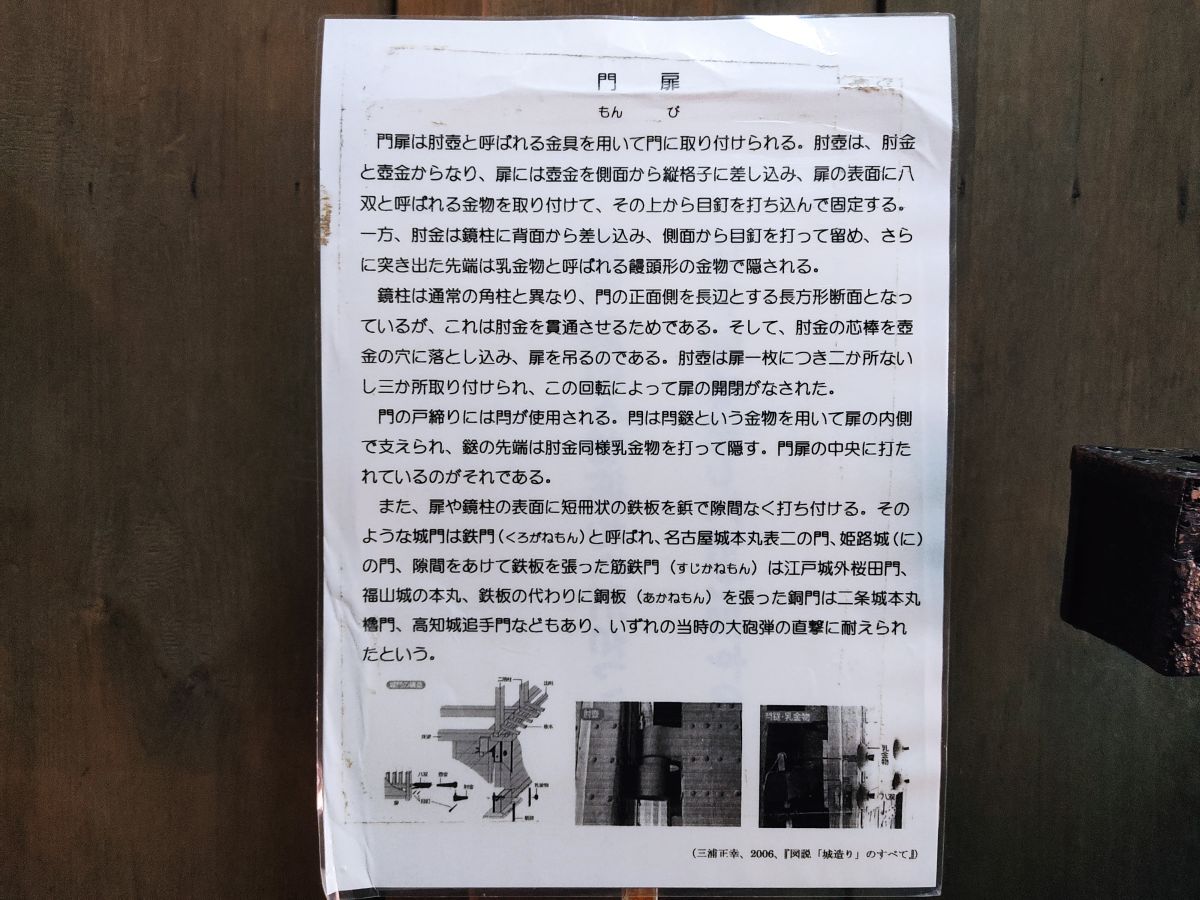 門 扉
もん び
門扉は肘壺と呼ばれる金具を用いて門に取り付けられる。肘壺は、肘金
と壺金からなり、扉には壺金を側面から縦格子に差し込み、扉の表面に八
双と呼ばれる金物を取り付けて、その上から目釘を打ち込んで固定する。
一方、肘金は鏡柱に背面から差し込み、側面から目釘を打って留め、さら
に突き出た先端は乳金物と呼ばれる饅頭形の金物で隠される。
鏡柱は通常の角柱と異なり、門の正面側を長辺とする長方形断面となっ
ているが、これは肘金を貫通させるためである。そして、肘金の芯棒を壺
金の穴に落とし込み、扉を吊るのである。肘壺は扉一枚につき二か所ない
し三か所取り付けられ、この回転によって扉の開閉がなされた。
門の戸締りには閂が使用される。閂は閂鎹という金物を用いて扉の内側
で支えられ、鎹の先端は肘金同様乳金物を打って隠す。門扉の中央に打た
れているのがそれである。
また、扉や鏡柱の表面に短冊状の鉄板を鋲で隙間なく打ち付ける。その
ような城門は鉄門(くろがねもん)と呼ばれ、名古屋城本丸表二の門、姫路城(に)
の門、隙間をあけて鉄板を張った筋鉄門(すじかねもん)は江戸城外桜田門、
福山城の本丸、鉄板の代わりに銅板(あかねもん)を張った銅門は二条城本丸
櫓門、高知城追手門などもあり、いずれの当時の大砲弾の直撃に耐えられ
たという。
肘壺
閂鎹・乳金物
乳金物
八双
八双
壺金
肘金
扉
(三浦正幸、2006、『図説「城造り」のすべて』)